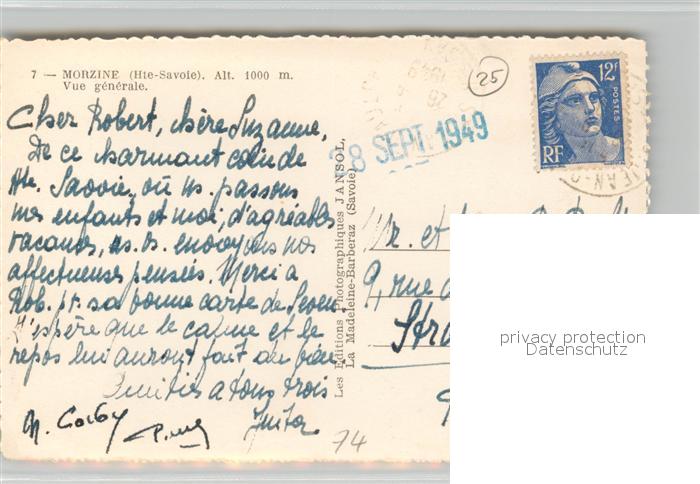 7 — MORZINE (Hte-Savoie). Alt. 1000 m.
Vue générale.
25
12F
POSTES
RF
28 SEPT. 1949
Cher Robert, chère Suzanne,
De ce charmant coin de
Hte. Savoie, où ns. passons
mes enfants et moi, d'agréables
vacances, ns. vs. envoyons nos
affectueuses pensées. Merci à
Rob. pr. sa bonne carte de
J'espère que le calme et le
repos lui auront fait du bien.
Amitiés à tous trois
74
Les Editions Photographiques JANSOL,
La Madeleine-Barberaz (Savoie)
Mr. et
9, rue
Stra
privacy protection
Datenschutz